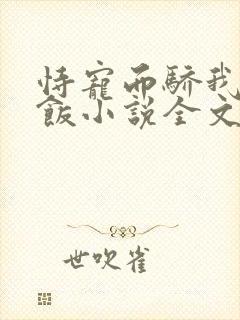 恃寵而驕我
飯小說全文
世吹雀